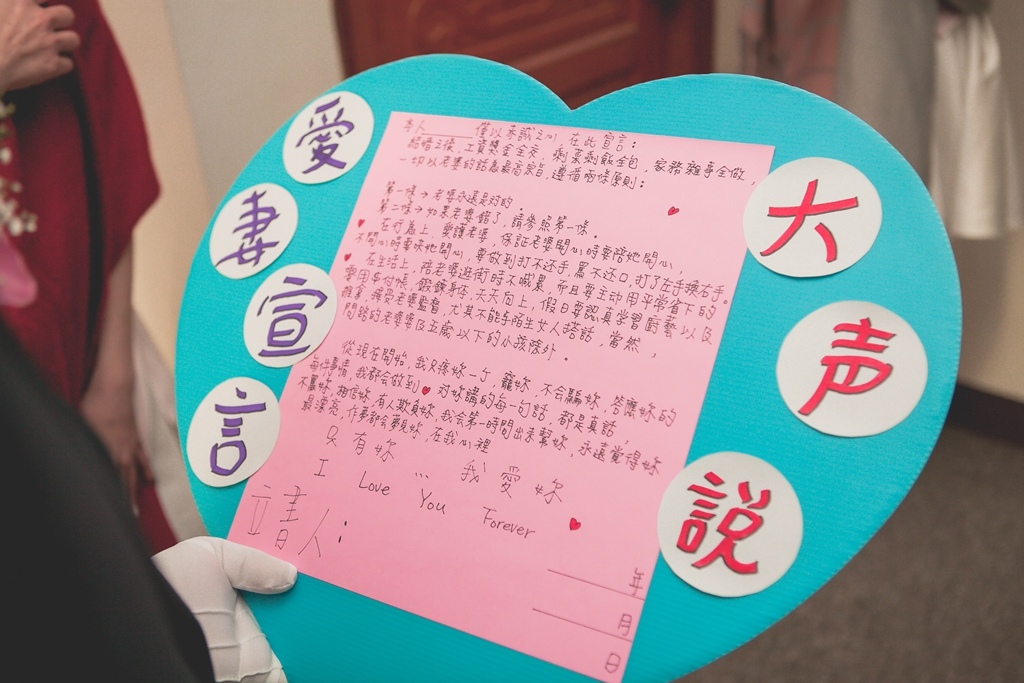 愛妻宣言
大声説
本人______僅以未誠之心,在此宣言:
結婚之後,工資獎金全交,剩菜剩飯全包,家務雜事全做,
一切以老婆的話為最高宗旨,遵循兩條原則:
第一條→老婆永遠是對的。
第二條→如果老婆錯了,請參照第一條。
♥在行為上,愛護老婆,保証老婆開心時要陪她開心,
不開心時要哄她開心,要做到打不还手,罵不还口,打了左手換右手。
♥在生活上,陪老婆逛街時不喊累,而且要主动用平常省下的
零用串付帳,鍛鍊身体,天天向上,假日要認真學習廚藝以及
推拿,接受老婆監督,尤其不能与陌生女人搭話,當然,
問路的老婆婆及五歲以下的小孩除外。
從現在開始,我只疼妳一个,寵妳,不会騙妳,答應妳的
每件事情,我都会做到♥对妳講的每一句話,都是真話,
不罵妳,相信妳,有人欺負妳,我会第一時間出来幫妳,永遠覺得妳
最漂亮,作夢都会夢見妳,在我心裡
只有妳...我愛妳
I Love You Forever
立書人:
年
月
日